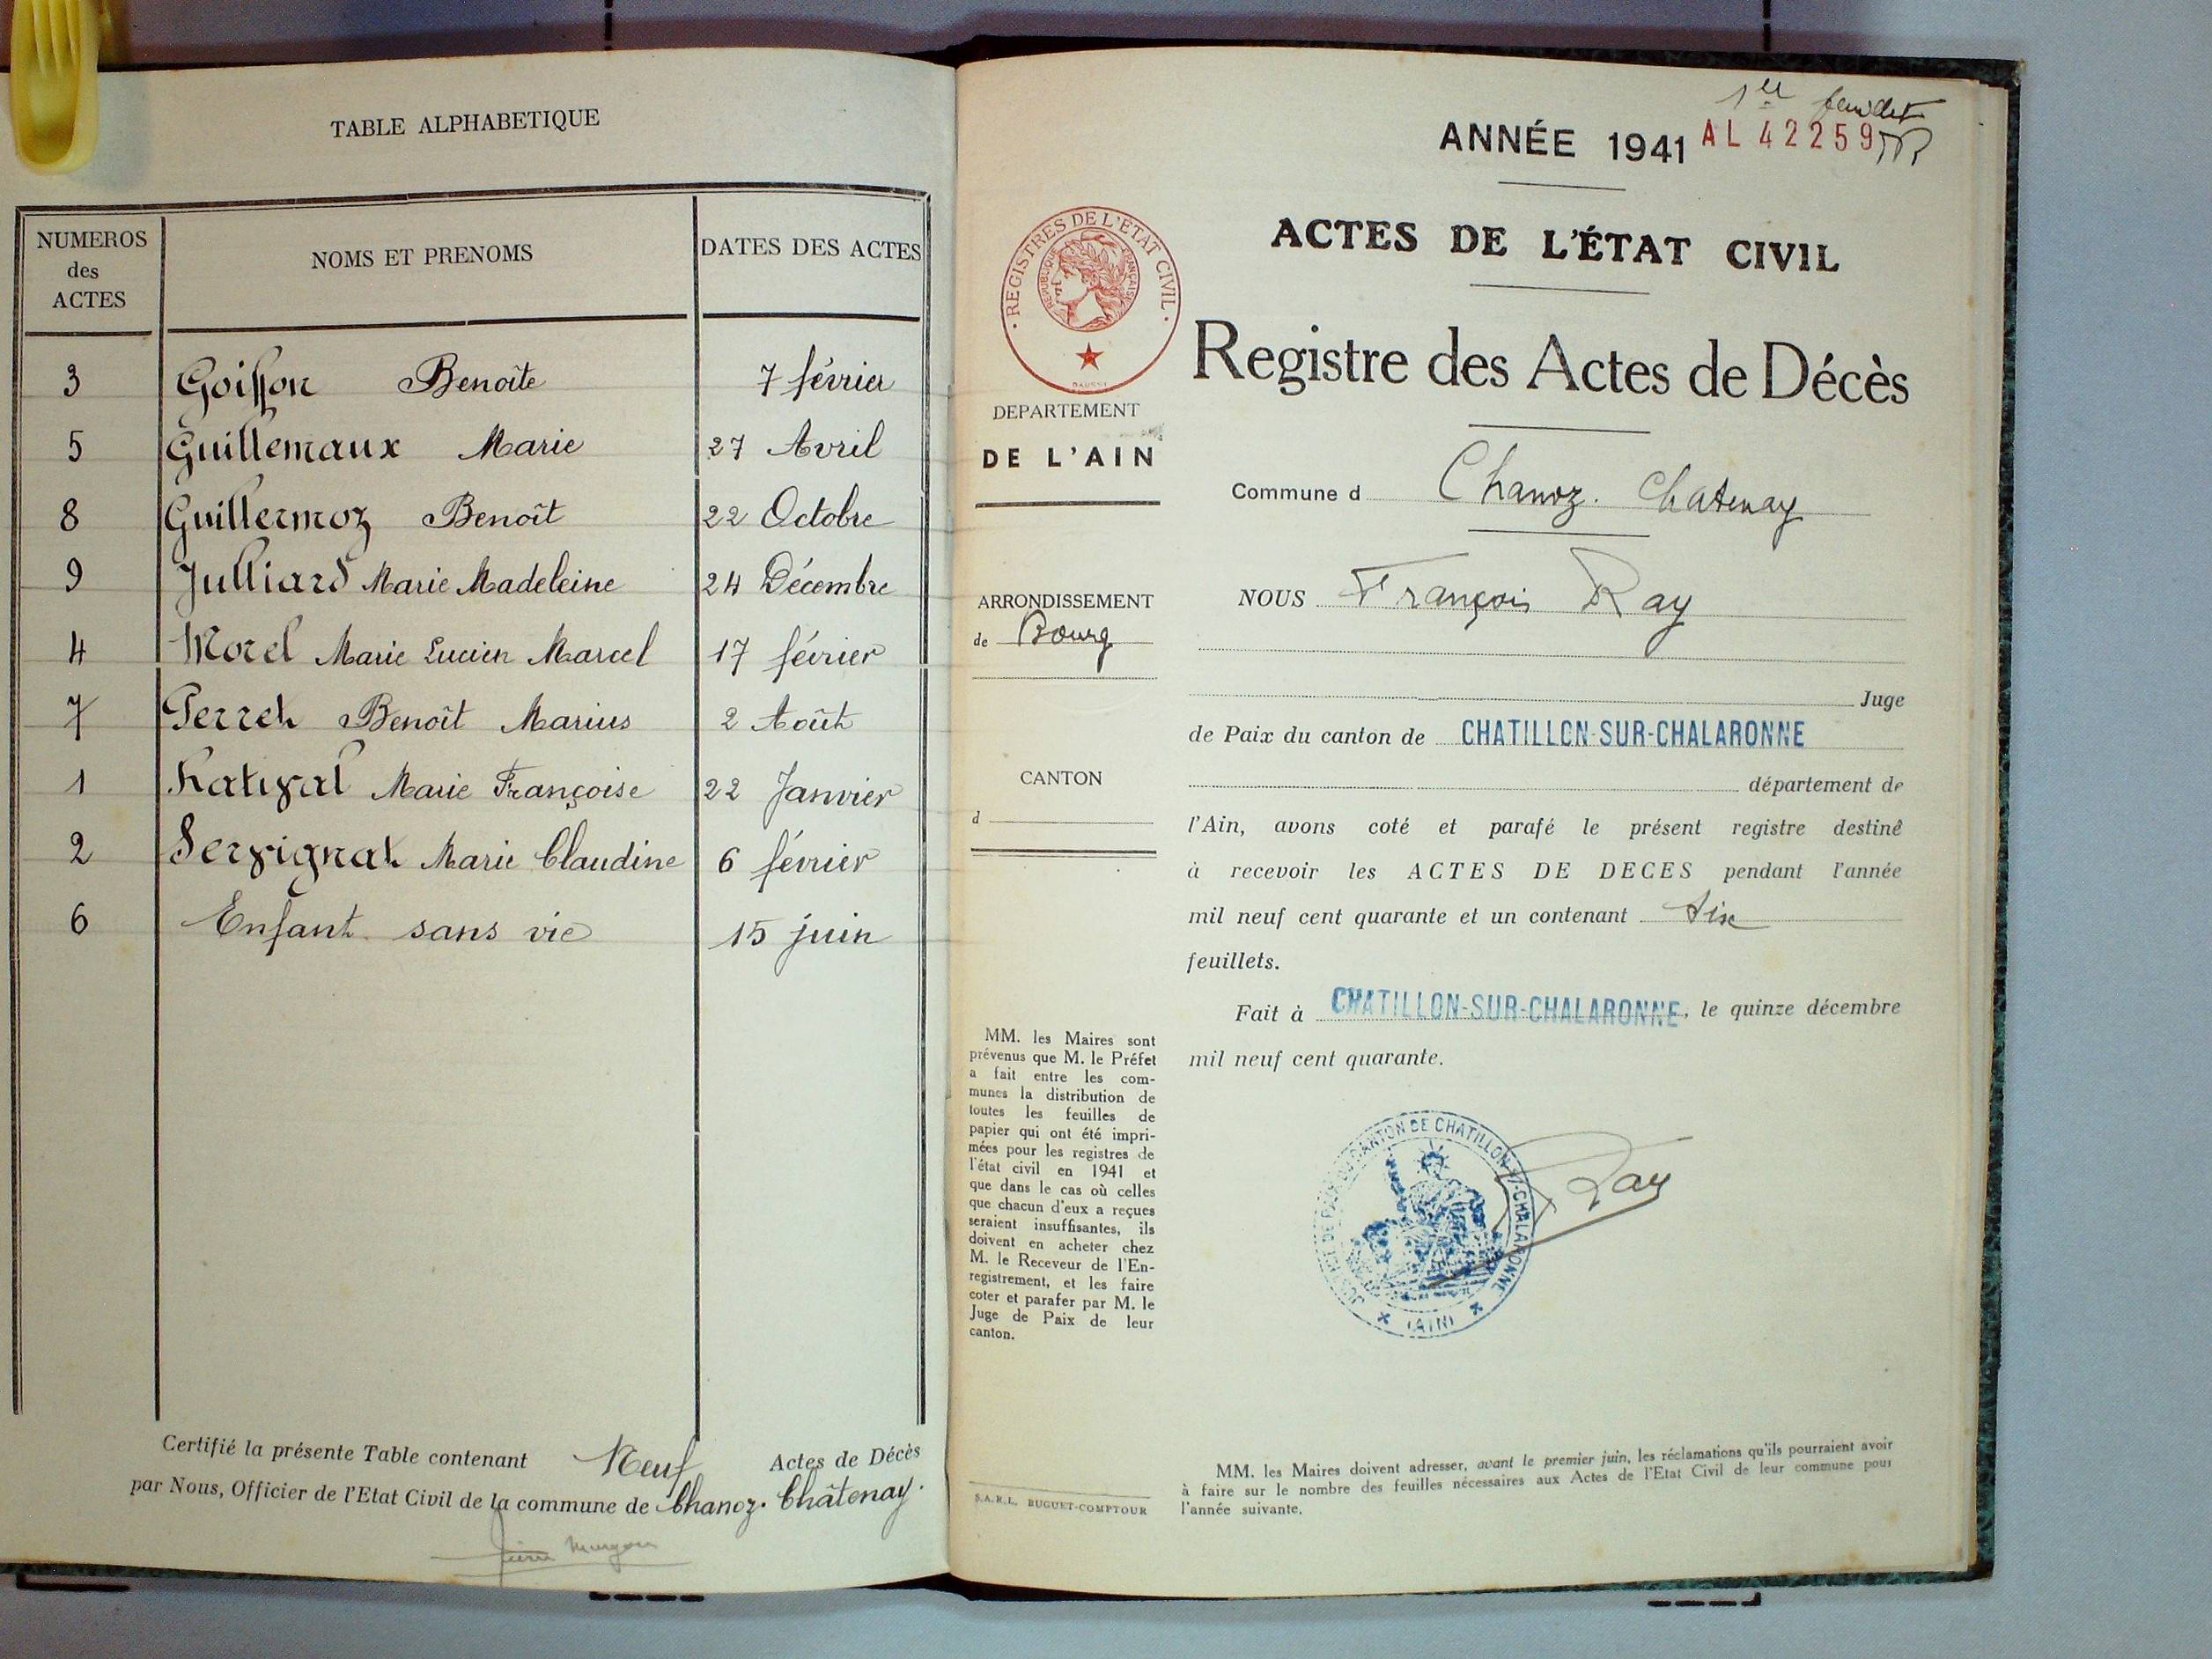 TABLE ALPHABETIQUE
NUMEROS des ACTES
NOMS ET PRENOMS
DATES DES ACTES
3 Goisson Benoîte 7 février
5 Guillemaux Marie 27 Avril
8 Guillermoz Benoît 22 Octobre
9 Julliard Marie Madeleine 24 Décembre
4 Morel Marie Lucien Marcel 17 février
7 Perret Benoît Marius 2 Août
1 Marie Françoise 22 Janvier
2 Servignat Marie Claudine 6 février
6 Enfant sans vie 15 juin
Certifié la présente Table contenant Neuf Actes de Décès
par Nous, Officier de l'Etat Civil de la commune de Chanoz-Châtenay.
1er feuillet
ANNÉE 1941 AL 42259
ACTES DE L'ÉTAT CIVIL
Registre des Actes de Décès
· REGISTRES DE L'ÉTAT CIVIL ·
REPUBLIQUE FRANÇAISE
DEPARTEMENT
DE L'AIN
Commune d Chanoz-Chatenay
ARRONDISSEMENT
de Bourg
CANTON
d
NOUS François Ray
Juge
de Paix du canton de CHATILLON-SUR-CHALARONNE
département de
l'Ain, avons coté et parafé le présent registre destiné
à recevoir les ACTES DE DECES pendant l'année
mil neuf cent quarante et un contenant Six
feuillets.
Fait à CHATILLON-SUR-CHALARONNE, le quinze décembre
mil neuf cent quarante.
MM. les Maires sont
prévenus que M. le Préfet
a fait entre les com-
munes la distribution de
toutes les feuilles de
papier qui ont été impri-
mées pour les registres de
l'état civil en 1941 et
que dans le cas où celles
que chacun d'eux a reçues
seraient insuffisantes, ils
doivent en acheter chez
M. le Receveur de l'En-
registrement, et les faire
coter et parafer par M. le
Juge de Paix de leur
canton.
CANTON DE CHATILLON-S/-CHALARONNE
(AIN)
Ray
S.A.R.L. BUGUET-COMPTOUR
MM. les Maires doivent adresser, avant le premier juin, les réclamations qu'ils pourraient avoir
à faire sur le nombre des feuilles nécessaires aux Actes de l'Etat Civil de leur commune pour
l'année suivante.